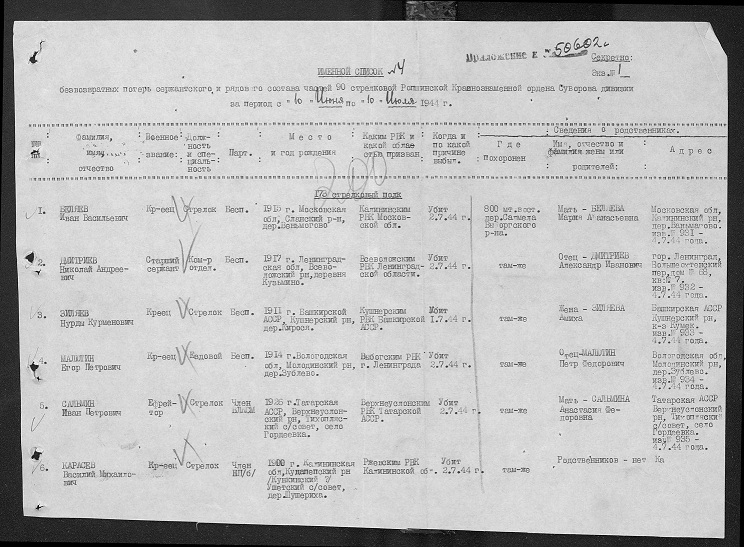 ПРИЛОЖЕНИЕ К 50602с
Секретно:
ИМЕННОЙ СПИСОК №4
Экз.№ 1
безвозвратных потерь сержантского и рядового состава частей 90 стрелковой Ропшинской Краснознаменной ордена Суворова дивизии
за период с "10" Июня по "10" Июля 1944 г.
Сведения о родственниках.
Фамилия, имя отчество
Военное звание:
Должность и специальность
Парт.
Место и год рождения
Каким РВК и какой области призван.
Когда и по какой причине выбыл.
Где похоронен
Имя, отчество и фамилия жены или родителей:
Адрес
200
173 стрелковый полк
1. БЕЛЯЕВ Иван Васильевич
Кр-еец
Стрелок
Бесп.
1915 г. Московская обл,
Калининским РВК Московской обл.
Убит 2.7.44 г.
800 мт.вост.
Мать - БЕЛЯЕВА Мария Афанасьевна
Московская обл, Калининский рн,
изв.№ 931 - 4.7.44 года.
2. ДМИТРИЕВ Николай Андреевич
Старший сержант
Ком-р отдел.
Бесп.
1917 г. Ленинградская обл, Всеволожский рн,деревня Кузьмино.
Всеволожским РВК Ленинградской области.
Убит 2.7.44 г.
там-же
Отец - ДМИТРИЕВ Александр Иванович
гор. Ленинград,
изв.№ 932 - 4.7.44 года.
3. ЗИЛЯЕВ Нурды Курменович
Кр-еец
Стрелок
Бесп.
1911 г. Башкирской АССР, Кушнерский рн,
Кушнерским РВК Башкирской АССР.
Убит 1.7.44 г.
там-же
Жена - ЗИЛЯЕВА
Башкирская АССР Кушнерский рн,
изв.№ 933 - 4.7.44 года.
4. МАЛЮТИН Егор Петрович
Кр-еец
Ездовой
Бесп.
1914 г.Вологодская обл, Молодинский рн, дер.Зублево.
Выборгским РВК г. Ленинграда
Убит 2.7.44 г.
там-же
Отец-МАЛЮТИН Петр Федорович
Вологодская обл, Молодинский рн, дер.Зублево.
изв.№ 934 - 4.7.44 года.
5. САЛЬМИН Иван Петрович
Ефрейтор
Стрелок
Член ВЛКСМ
1926 г.Татарская АССР, Верхнеуслонский рн,
с/совет, село Гордеевка.
Верхнеуслонским РВК Татарской АССР.
Убит 2.7.44 г.
там-же
Мать - САЛЬМИНА Анастасия Федоровна
Татарская АССР Верхнеуслонский рн,
с/совет, село Гордеевка.
изв№ 935 - 4.7.44 года.
6. КАРАСЕВ Василий Михайлович
Кр-еец
Стрелок
Член
1900 г. Калининская обл,
с/совет,
Ржевским РВК Калининской об-.
Убит 2.7.44 г.
там-же
Родственников - нет